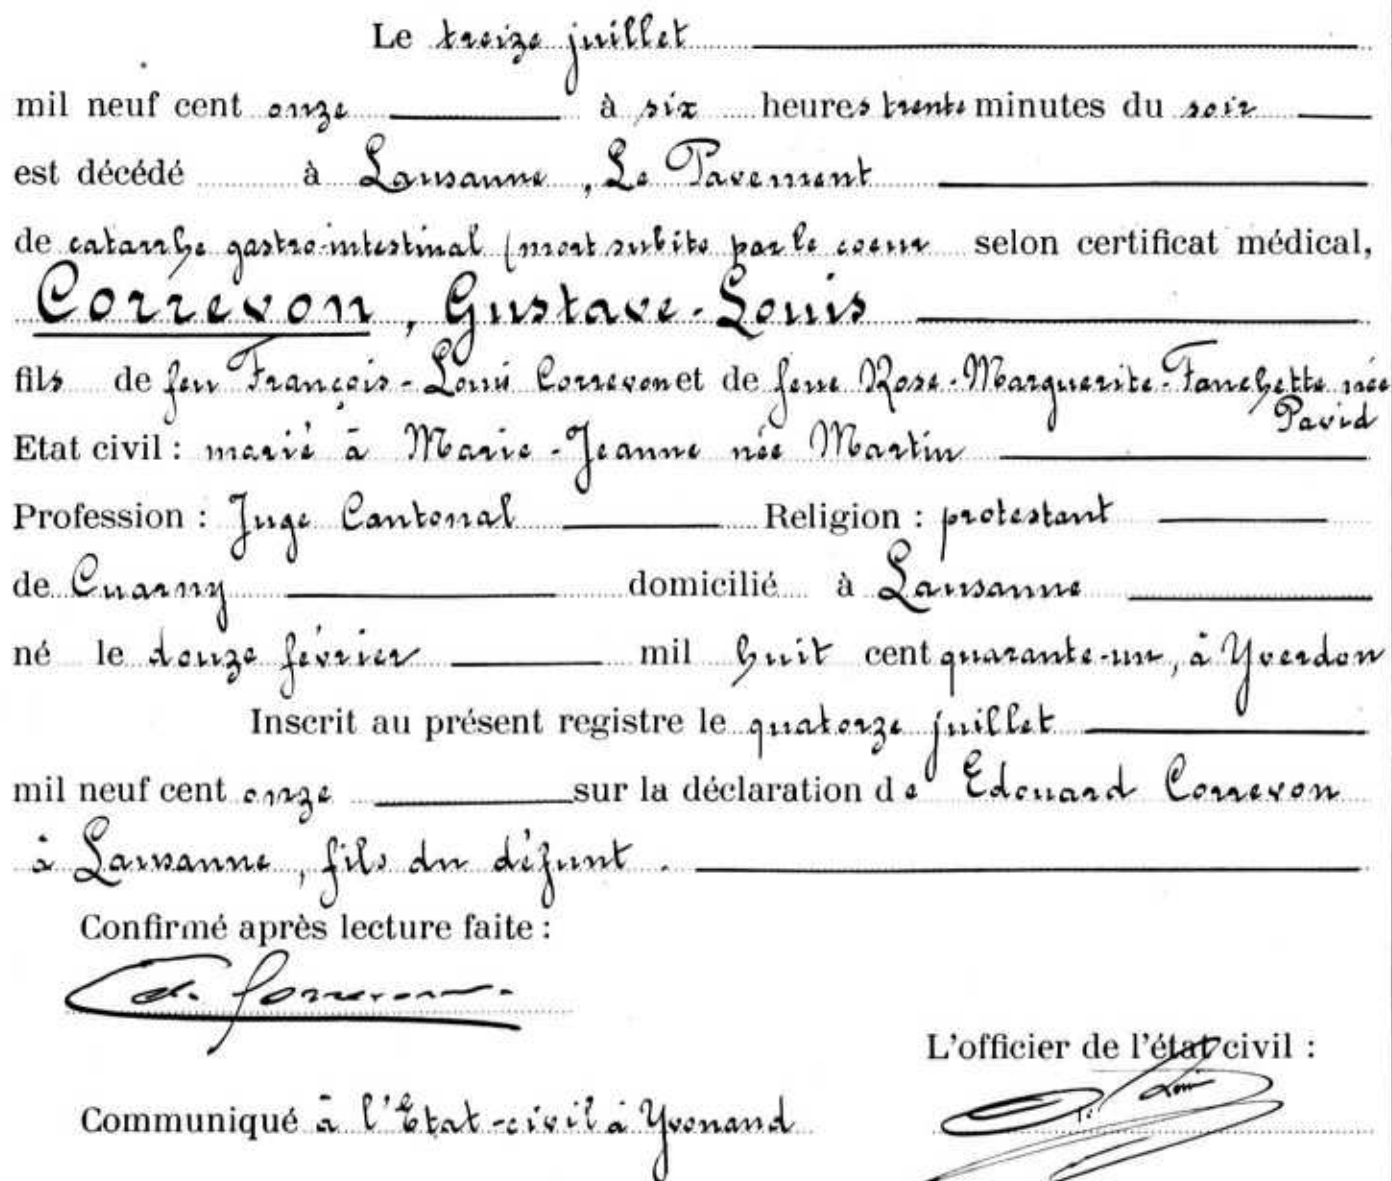 Le treize juillet
mil neuf cent onze à six heures trente minutes du soir
est décédé à Lausanne, Le Pavement
de catarrhe gastro-intestinal (mort subite par le coeur selon certificat médical,
Correvon, Gustave-Louis
fils de feu François-Louis Correvon et de feue Rose-Marguerite-Fanchette née
Pavid
Etat civil : marié à Marie-Jeanne née Martin
Profession : Juge Cantonal Religion : protestant
de Cuarny domicilié à Lausanne
né le douze février mil huit cent quarante-un, à Yverdon
Inscrit au présent registre le quatorze juillet
mil neuf cent onze sur la déclaration de Edouard Correvon
à Lausanne, fils du défunt.
Confirmé après lecture faite :
Ed. Correvon.
L'officier de l'état civil :
Communiqué à l'Etat-civil à Yvonand